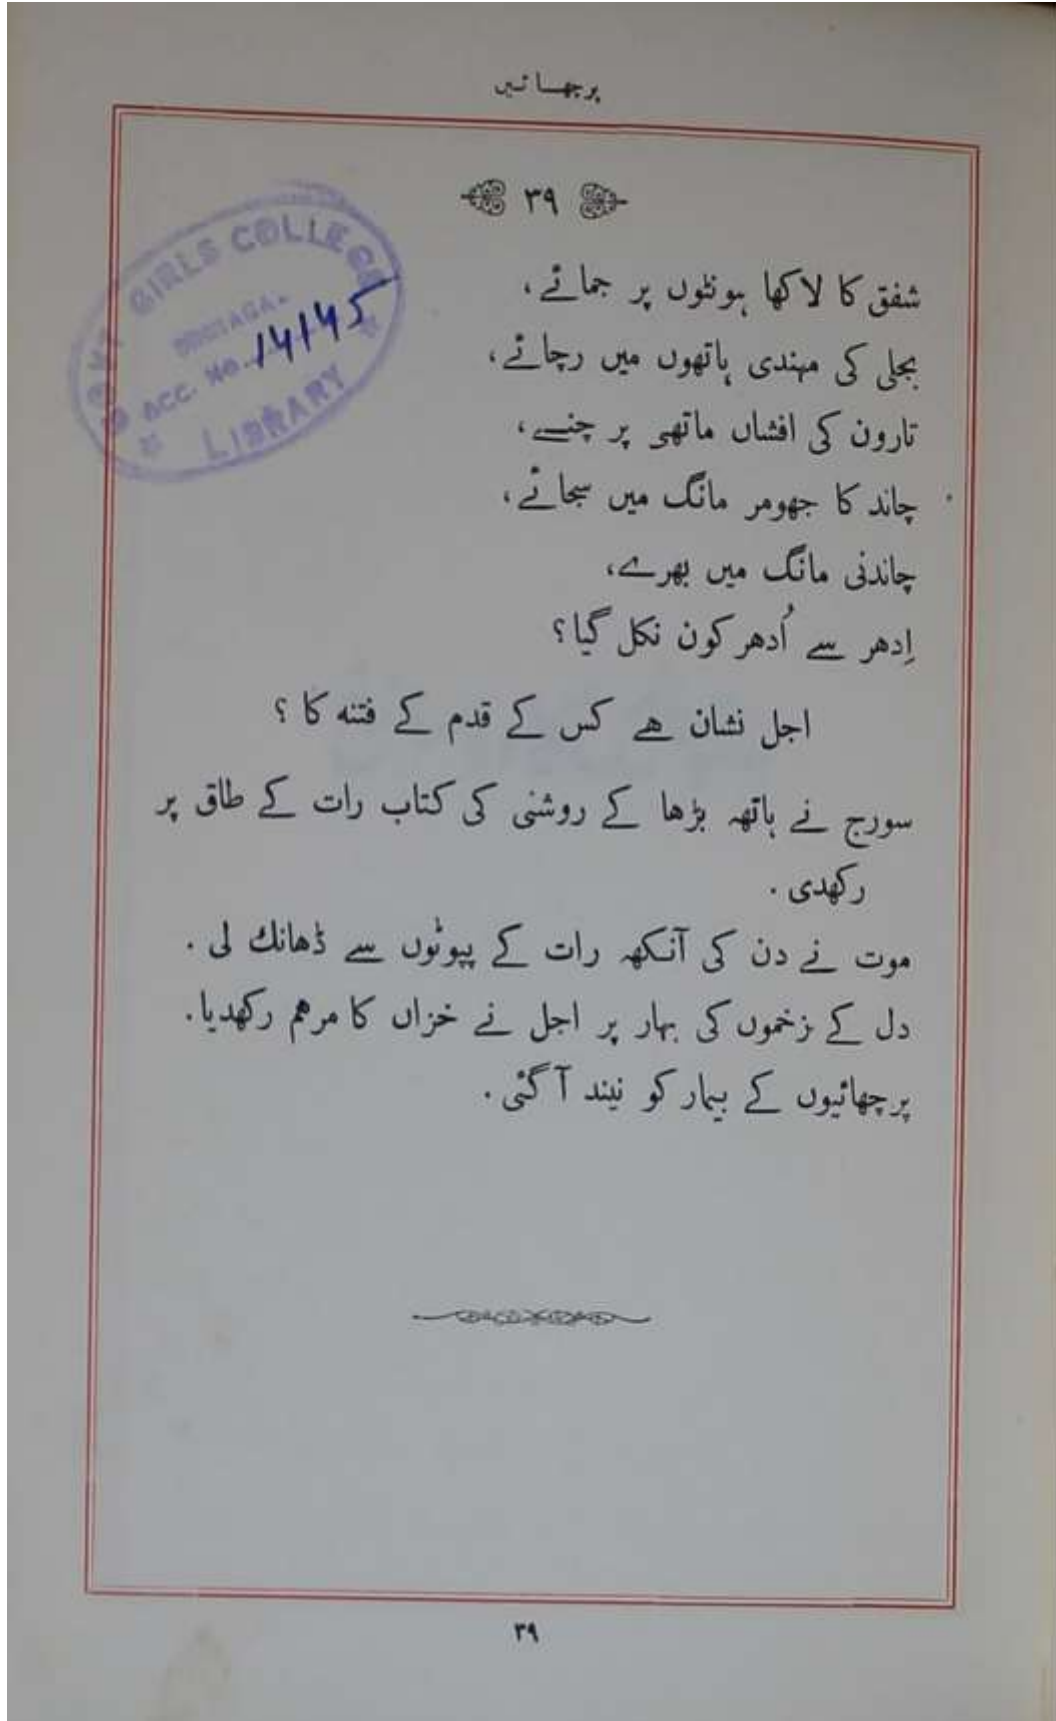 پرچھائیں
۳۹
GOVT GIRLS COLLEGE
ACC. No. 14145
LIBRARY
شفق کا لاکھا ہونٹوں پر جمائے،
بجلی کی مہندی ہاتھوں میں رچائے،
تارون کی افشاں ماتھی پر چنے،
چاند کا جھومر مانگ میں سجائے،
چاندنی مانگ میں بھرے،
اِدھر سے اُدھر کون نکل گیا؟
اجل نشان ھے کس کے قدم کے فتنہ کا ؟
سورج نے ہاتھہ بڑھا کے روشنی کی کتاب رات کے طاق پر
رکھدی ۔
موت نے دن کی آنکھہ رات کے پپوٹوں سے ڈھانك لی ۔
دل کے زخموں کی بہار پر اجل نے خزاں کا مرھم رکھدیا۔
پرچھائیوں کے بیمار کو نیند آ گئی ۔
۳۹